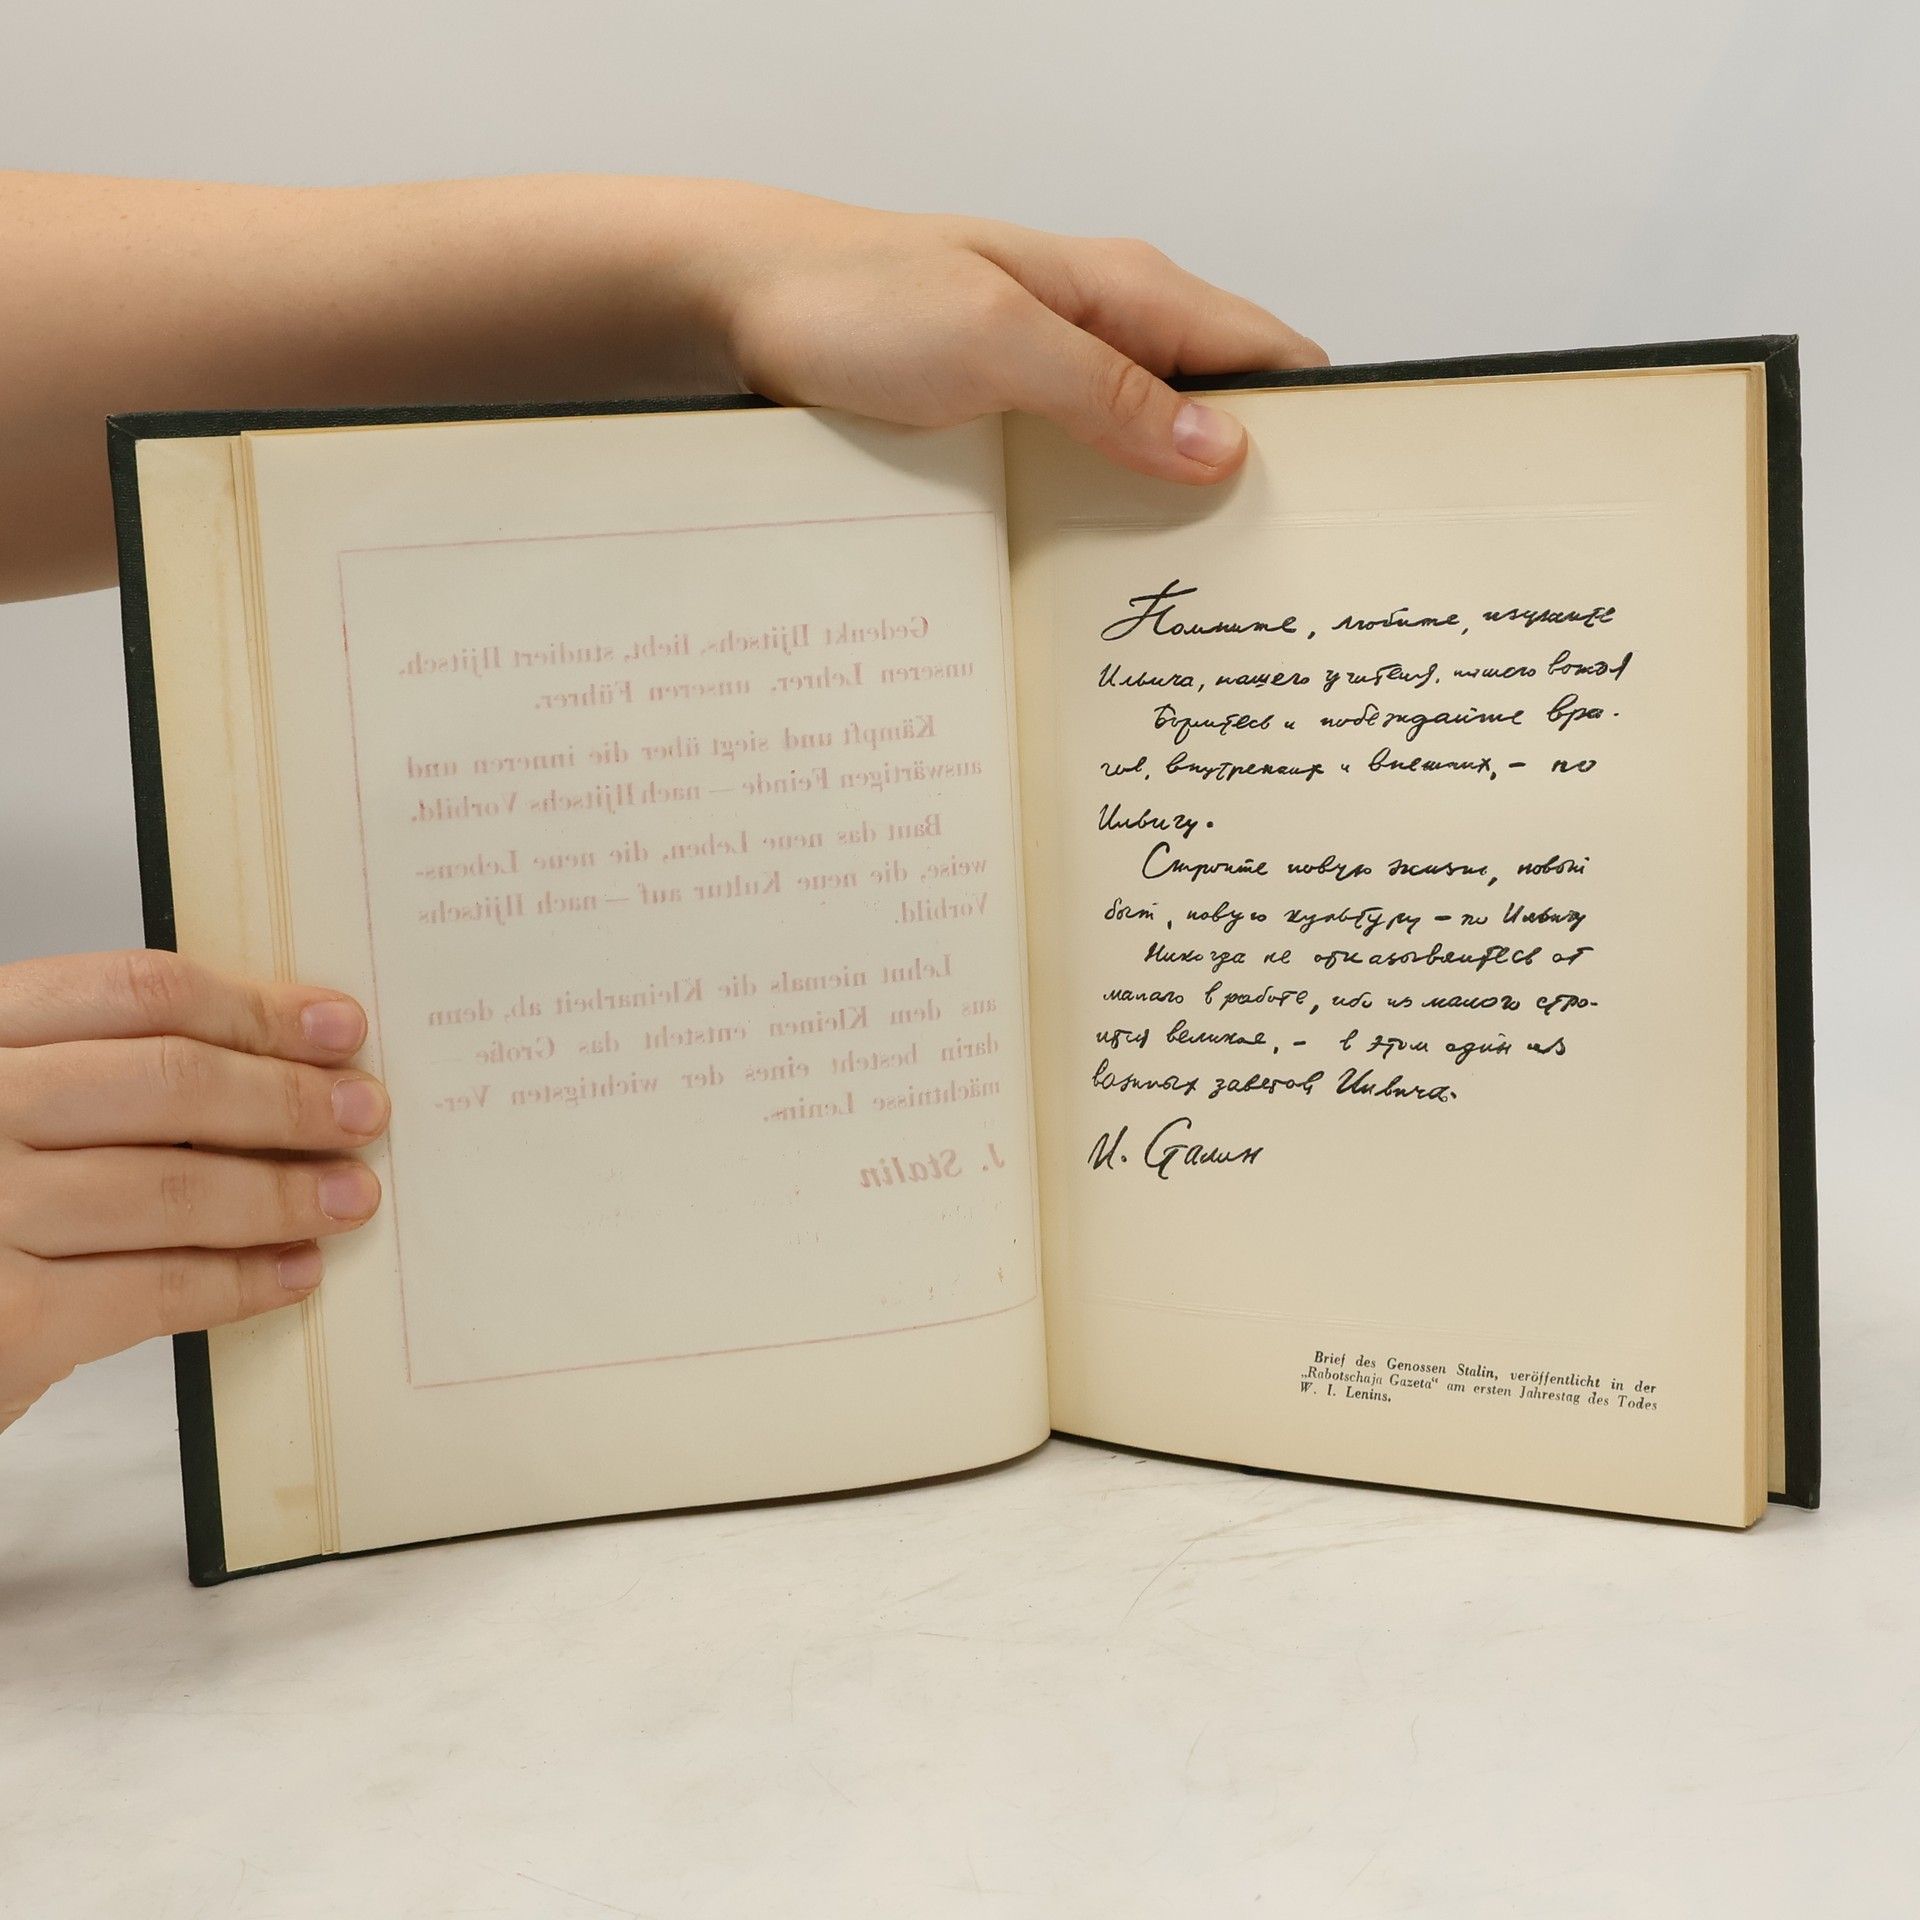 Gedenkt Iljitschs, liebt, studiert Iljitsch,
unseren Lehrer, unseren Führer.
Kämpft und siegt über die inneren und
auswärtigen Feinde — nach Iljitschs Vorbild.
Baut das neue Leben, die neue Lebens-
weise, die neue Kultur auf — nach Iljitschs
Vorbild.
Lehnt niemals die Kleinarbeit ab, denn
aus dem Kleinen entsteht das Große —
darin besteht eines der wichtigsten Ver-
mächtnisse Lenins.
J. Stalin
Помните, любите, изучайте
Ильича, нашего учителя, нашего вождя
Боритесь и побеждайте вра-
гов, внутренних и внешних, – по
Ильичу.
Стройте новую жизнь, новый
быт, новую культуру – по Ильичу
Никогда не отказывайтесь от
малого в работе, ибо из малого стро-
ится великое, – в этом один из
важных заветов Ильича.
И. Сталин
Brief des Genossen Stalin, veröffentlicht in der
„Rabotschaja Gazeta“ am ersten Jahrestag des Todes
W. I. Lenins.